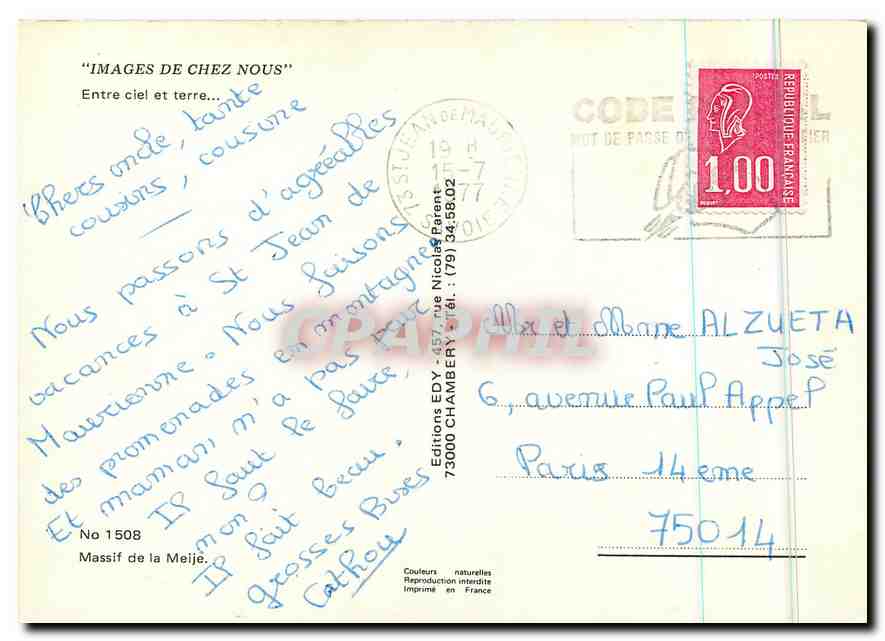 "IMAGES DE CHEZ NOUS"
Entre ciel et terre...
Chers oncle, tante
cousins, cousine
Nous passons d'agréables
vacances à St Jean de
Maurienne. Nous faisons
des promenades en montagnes
Et maman n'a pas peur
Il faut le faire,
non ?
Il fait beau.
grosses Bises
Cathou
No 1508
Massif de la Meije.
73 ST JEAN DE MAURIENNE
19 H
15-7
1977
SAVOIE
CODE
MOT DE PASSE
POSTES
REPUBLIQUE FRANÇAISE
1,00
Editions EDY - 457, rue Nicolas Parent
73000 CHAMBERY - Tél. : (79) 34.58.02
CPAPHIL
Mr et Mme ALZUETA
José
6, avenue Paul Appel
Paris 14eme
75014
Couleurs naturelles
Reproduction interdite
Imprimé en France